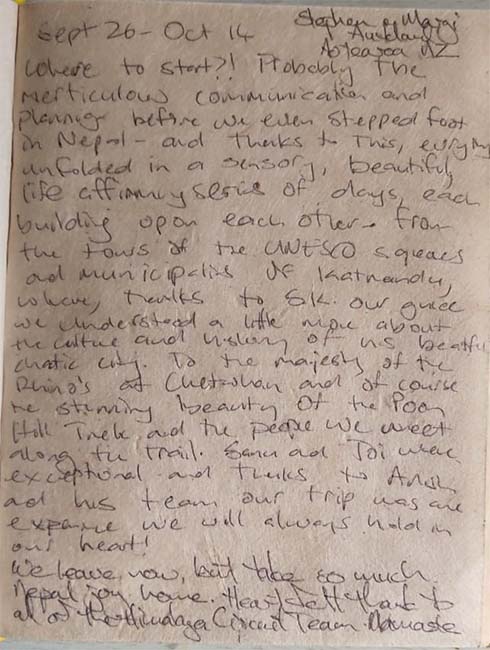 Sept 26 - Oct 14
Stephen &
Auckland
Aotearoa NZ
Where to start?! Probably the
merticulous communication and
planning before we even stepped foot
in Nepal - and thanks to this, everything
unfolded in a sensory, beautiful,
life affirming series of days, each
building upon each other - from
the tours of the UNESCO squares
ad municipalis of Kathmandu,
where, thanks to S.K. our guide
we understood a little more about
the culture and history of this beatiful
chaotic city. To the majesty of the
Rhino's at and of course
the stunning beauty of the Poon
Hill Trek and the people we meet
along the trail. ad were
exceptional and thanks to
ad his team our trip was one
experince we will always hold in
our heart!
We leave now, but take so much
Nepal joy home. Heartfelt thanks to
all of the Himalaya Circuit Team. Namaste